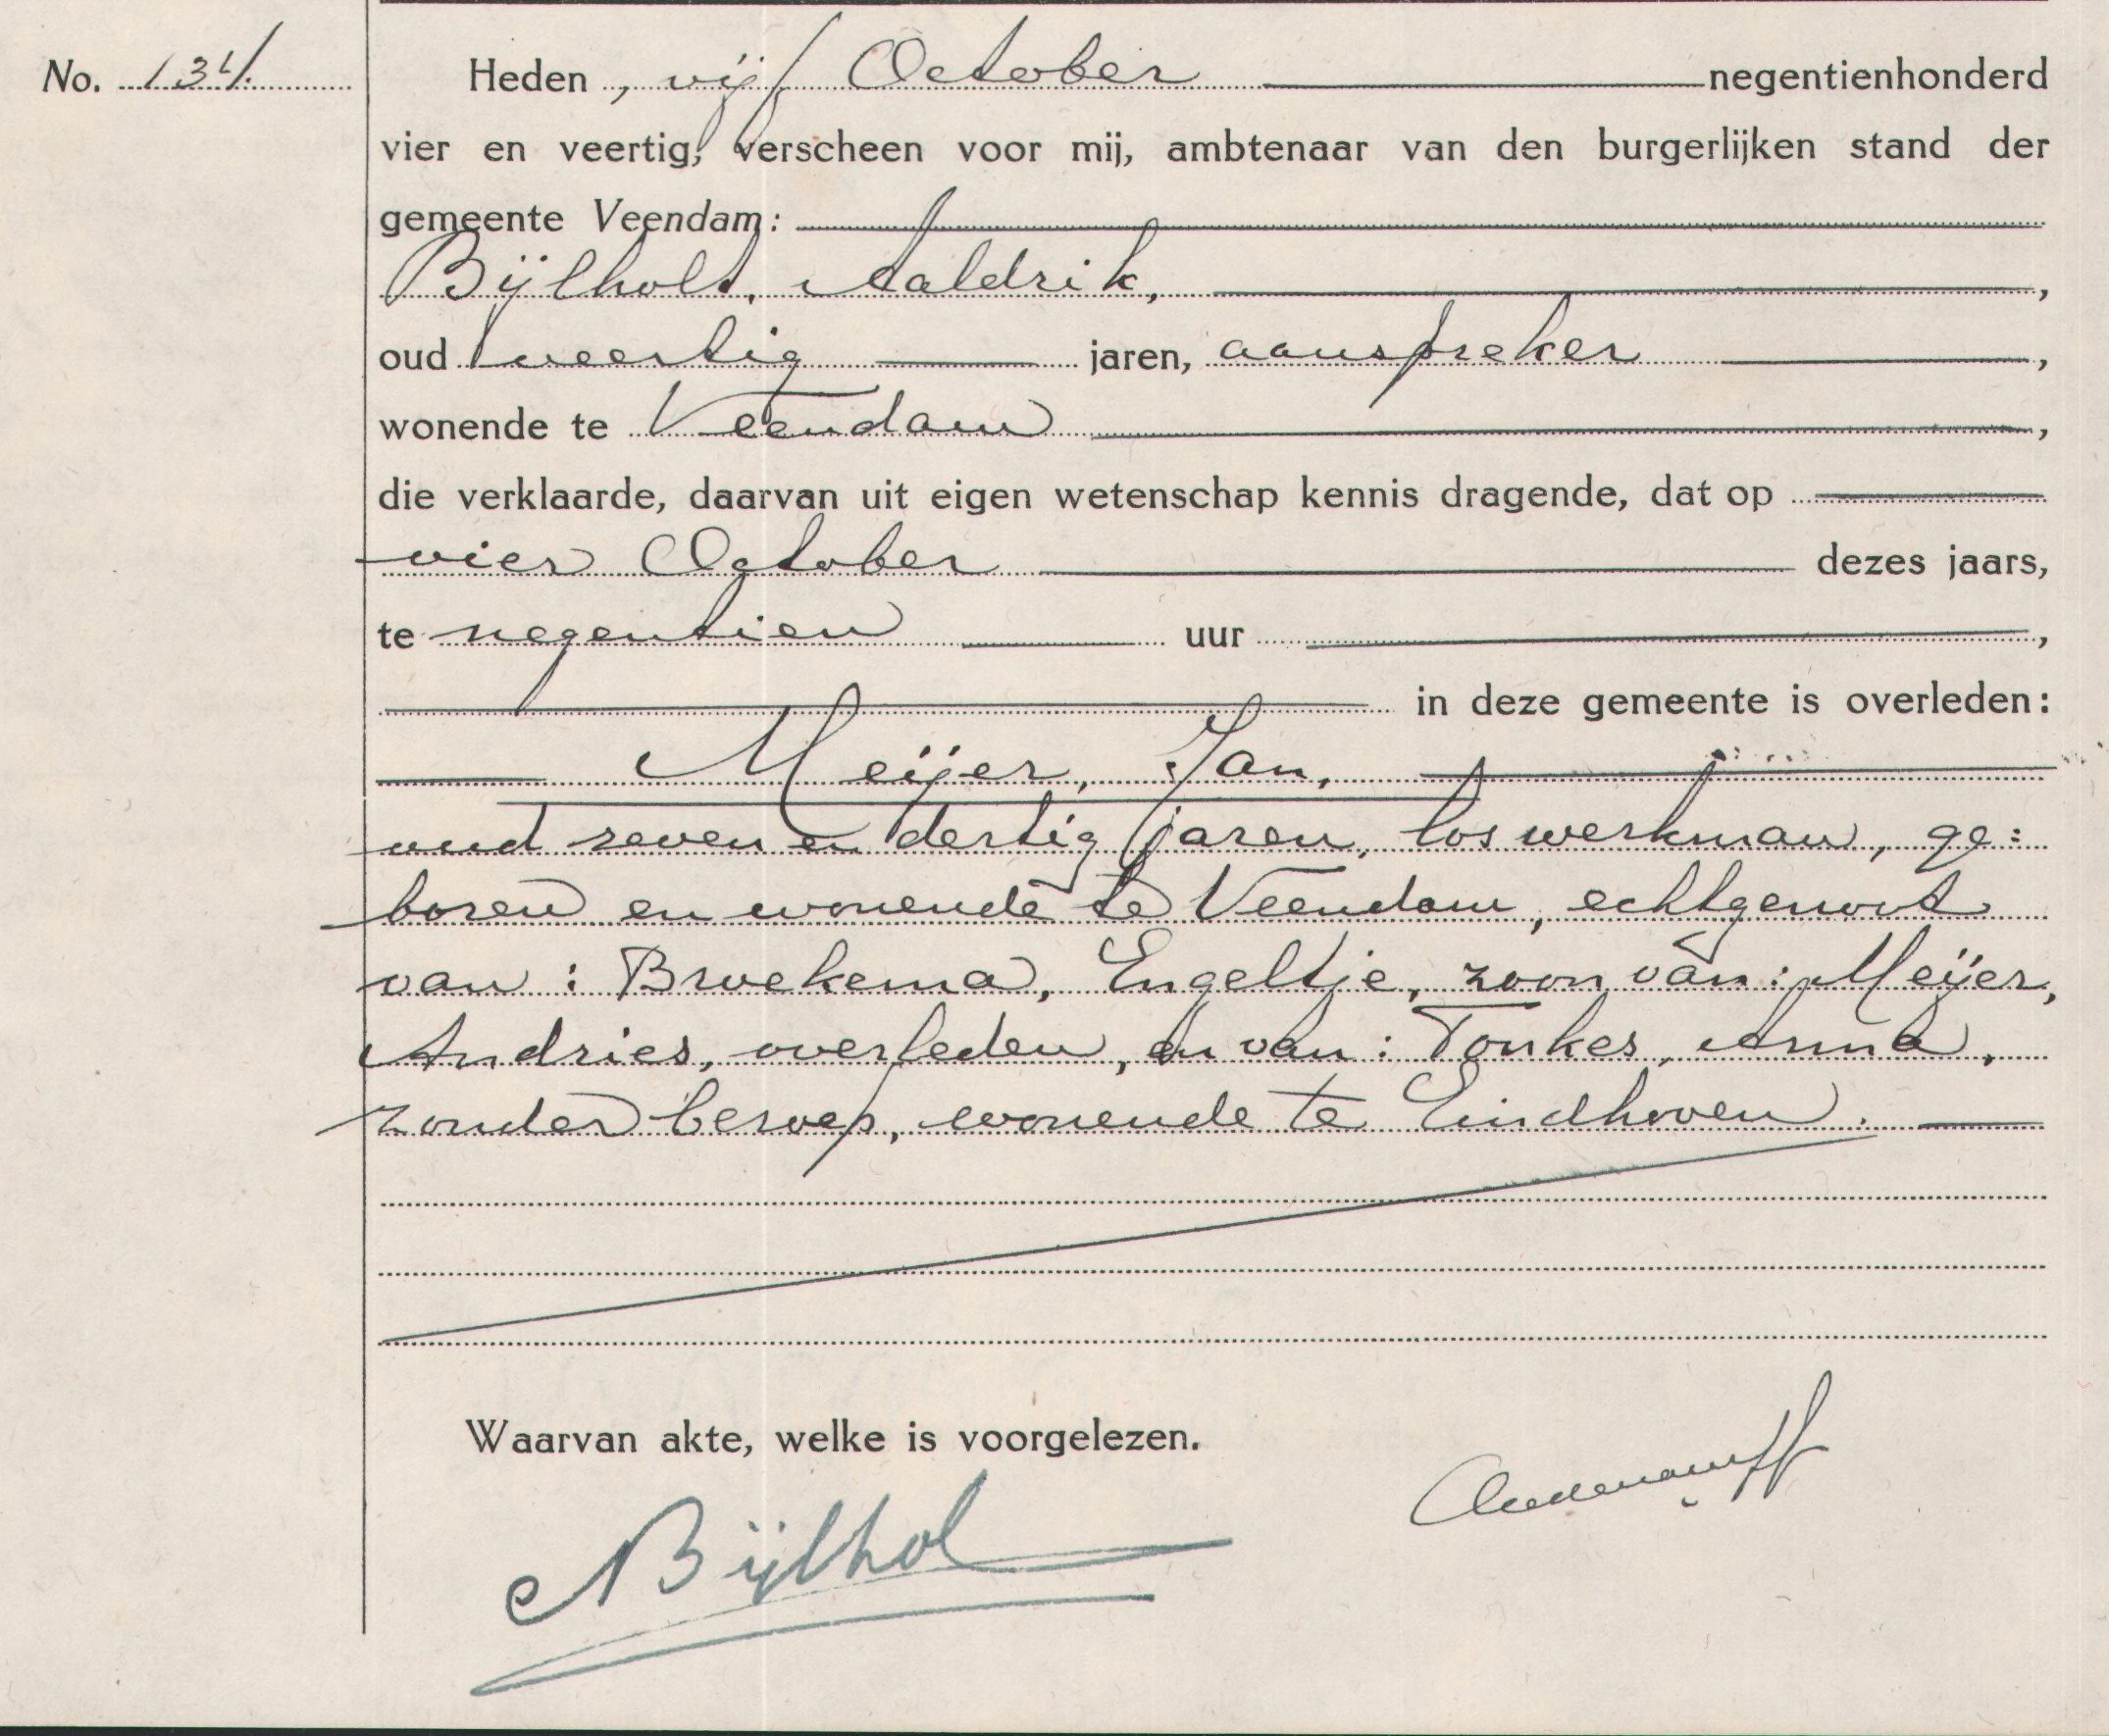 No. 134.
Heden, vijf October negentienhonderd
vier en veertig, verscheen voor mij, ambtenaar van den burgerlijken stand der
gemeente Veendam:
Bijlholt, Aaldrik,
oud veertig jaren, aanspreker,
wonende te Veendam,
die verklaarde, daarvan uit eigen wetenschap kennis dragende, dat op
vier October dezes jaars,
te negentien uur,
in deze gemeente is overleden:
Meijer, Jan,
oud zeven en dertig jaren, los werkman, ge=
boren en wonende te Veendam, echtgenoot
van: Broekema, Engeltje, zoon van: Meijer,
Andries, overleden, en van: Tonkes, Anna,
zonder beroep, wonende te Eindhoven.
Waarvan akte, welke is voorgelezen.
ABijlhol